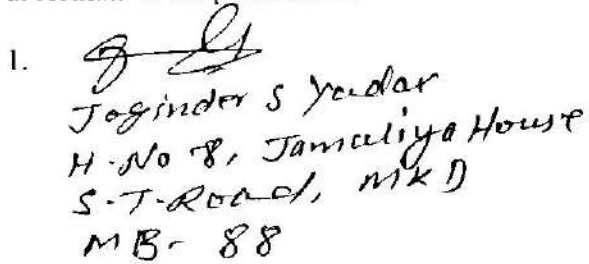 1.
Joginder S Yadav
H.No 8, Jamaliya House
S.T.Road, MKD
MB- 88